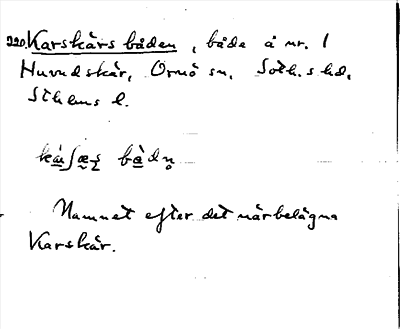 220. Karskärs båden, båda å nr. 1
Huvudskär, Ornö sn, Soth.s hd,
Sthlms l.
Namnet efter det närbelägna
Karskär.